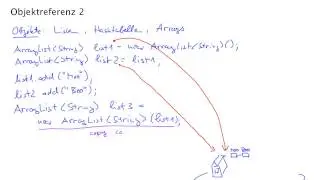 Objektreferenz 2
Objekte: Listen, Hashtabellen, Arrays
ArrayList(String) list1 = new ArrayList(String)();
ArrayList(String) list2 = list1;
list1.add("Moo");
list2.add("Boo");
ArrayList(String) list3 =
new ArrayList(String)(list1);
copy
Moo Boo